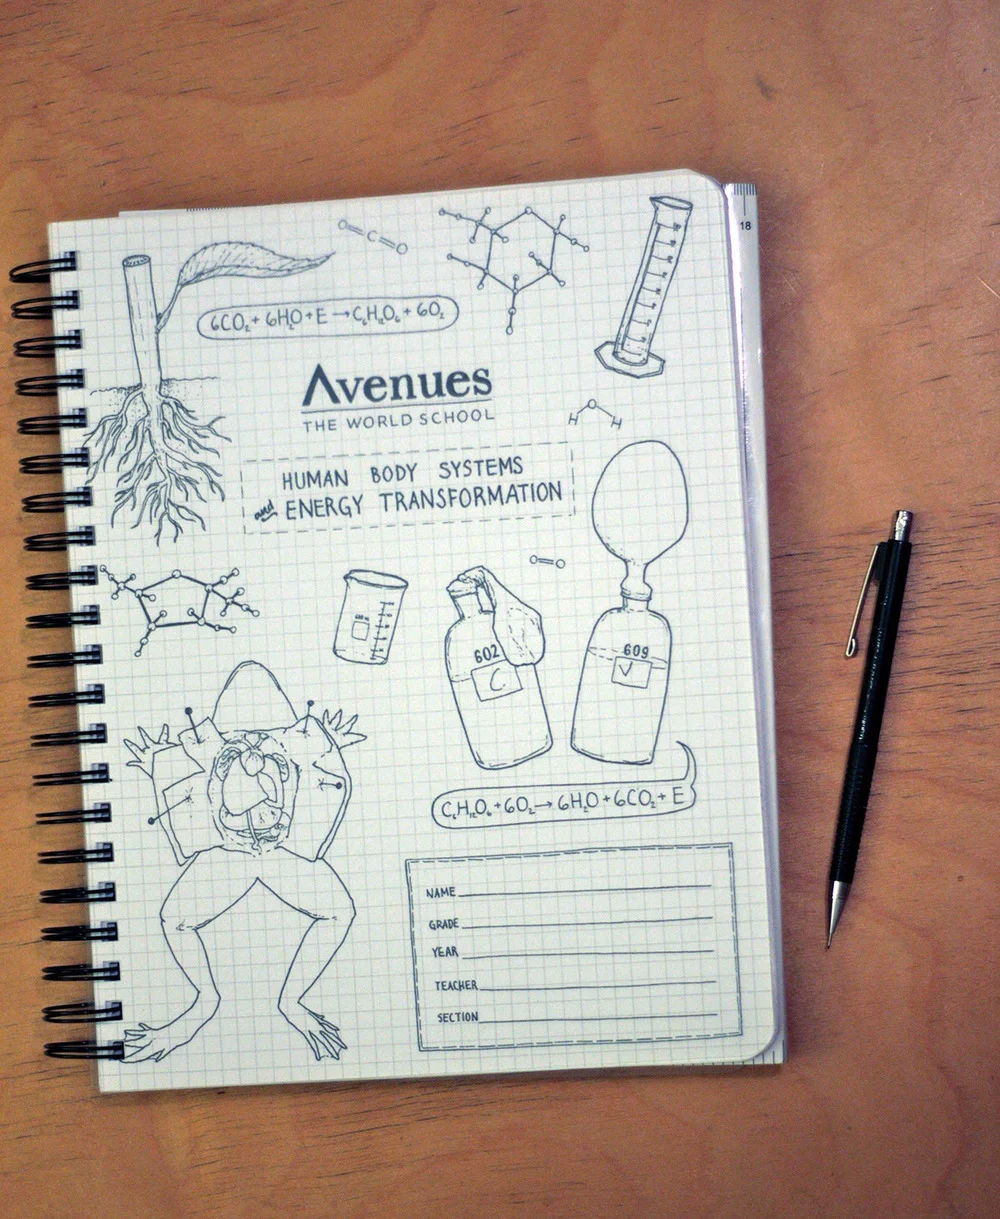 18
O=C=O
6CO₂ + 6H₂O + E → C₆H₁₂O₆ + 6O₂
Avenues
THE WORLD SCHOOL
H O H
HUMAN BODY SYSTEMS
and ENERGY TRANSFORMATION
O=O
602
C
609
V
C₆H₁₂O₆ + 6O₂ → 6H₂O + 6CO₂ + E
NAME
GRADE
YEAR
TEACHER
SECTION